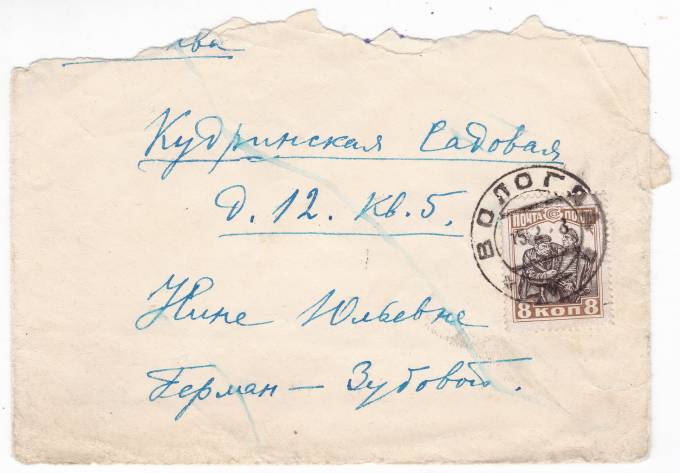 Кудринская Садовая
д. 12. кв. 5.
Нине Юльевне
Герман — Зубовой.
ВОЛОГДА
ПОЧТА СССР
8 КОП 8